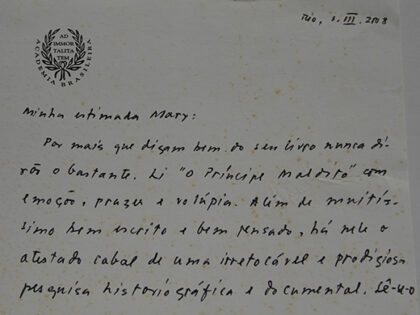 AD
IMMOR
TALITA
TEM
ACADEMIA BRASILEIRA
Rio, 3.III.2008
Minha estimada Mary:
Por mais que digam bem do seu livro nunca di-
rão o bastante. Li "O Príncipe Maldito" com
emoção, prazer e volúpia. Além de muitís-
simo bem escrito e bem pensado, há nele o
atestado cabal de uma irretocável e prodigiosa
pesquisa historiográfica e documental. Lê-o